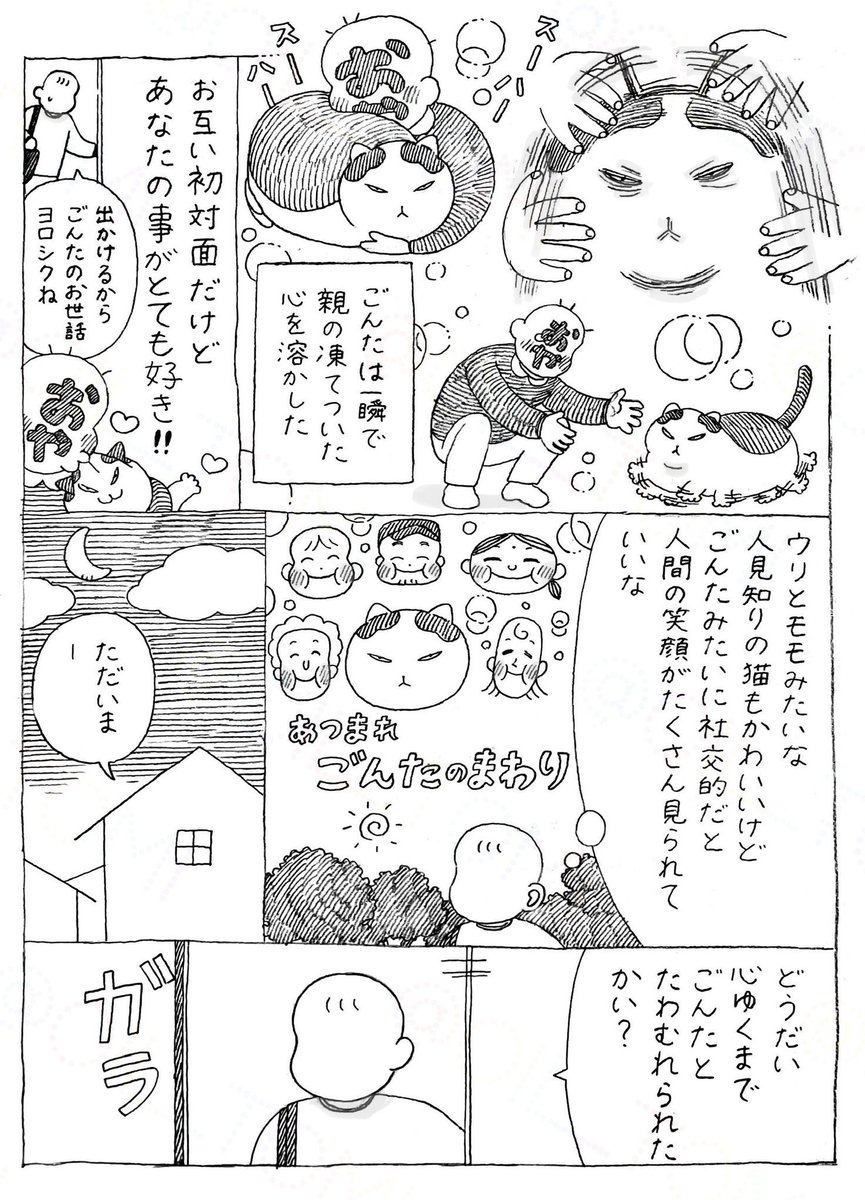 スーハー
スーハー
おや
おや
ごんたは一瞬で
親の凍てついた
心を溶かした
お互い初対面だけど
あなたの事がとても好き!!
出かけるから
ごんたのお世話
ヨロシクね
おや
ウリとモモみたいな
人見知りの猫もかわいいけど
ごんたみたいに社交的だと
人間の笑顔がたくさん見られて
いいな
あつまれ
ごんたのまわり
ただいま
ー
どうだい
心ゆくまで
ごんたと
たわむれられた
かい?
ガラ